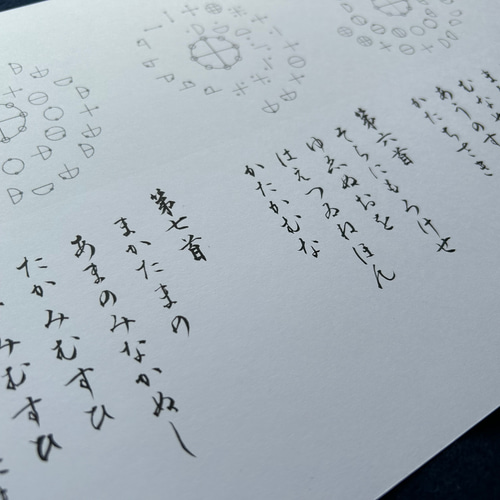 あうのす
かたちさき
第六首
そらにもろけせ
ゆゑぬおを
はえつゐねほん
かたかむな
第七首
まかたまの
あまのみなかぬし
たかみむすひ
みむすひ